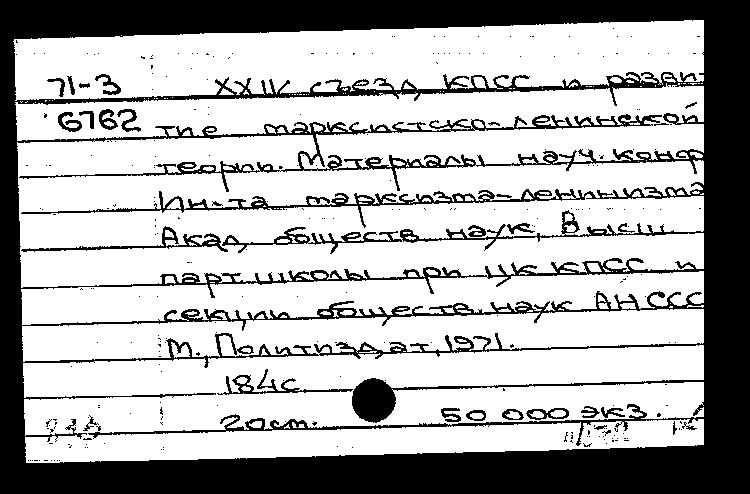 71-3 XXIV съезд КПСС и разви-
6762 тие марксистско-ленинской
теории. Материалы науч. конф
Ин-та марксизма-ленинизма
Акад. обществ наук, Высш.
парт. школы при ЦК КПСС и
секции обществ. наук АН СССР
М., Политиздат, 1971.
184 с.
20 см. 50 000 экз.